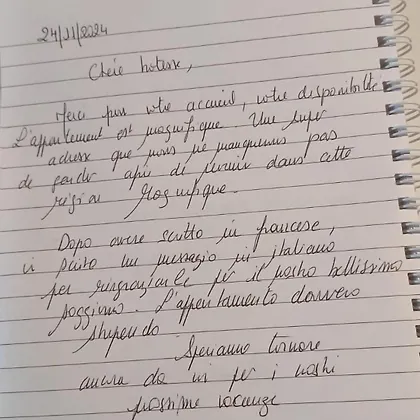 24/11/2024
Chère hotesse,
Merci pour votre accueil, votre disponibilité
L'appartement est magnifique Une super
adresse que nous ne manquerons pas
de garder afin de revenir dans cette
région Magnifique.
Dopo avere scritto in francese,
vi scrivo un messagio in italiano
per ringraziarle per il nostro bellissimo
soggiorno. L'appartamento davvero
stupendo
Speriamo tornare
ancora da voi per i nostri
prossime vacanze